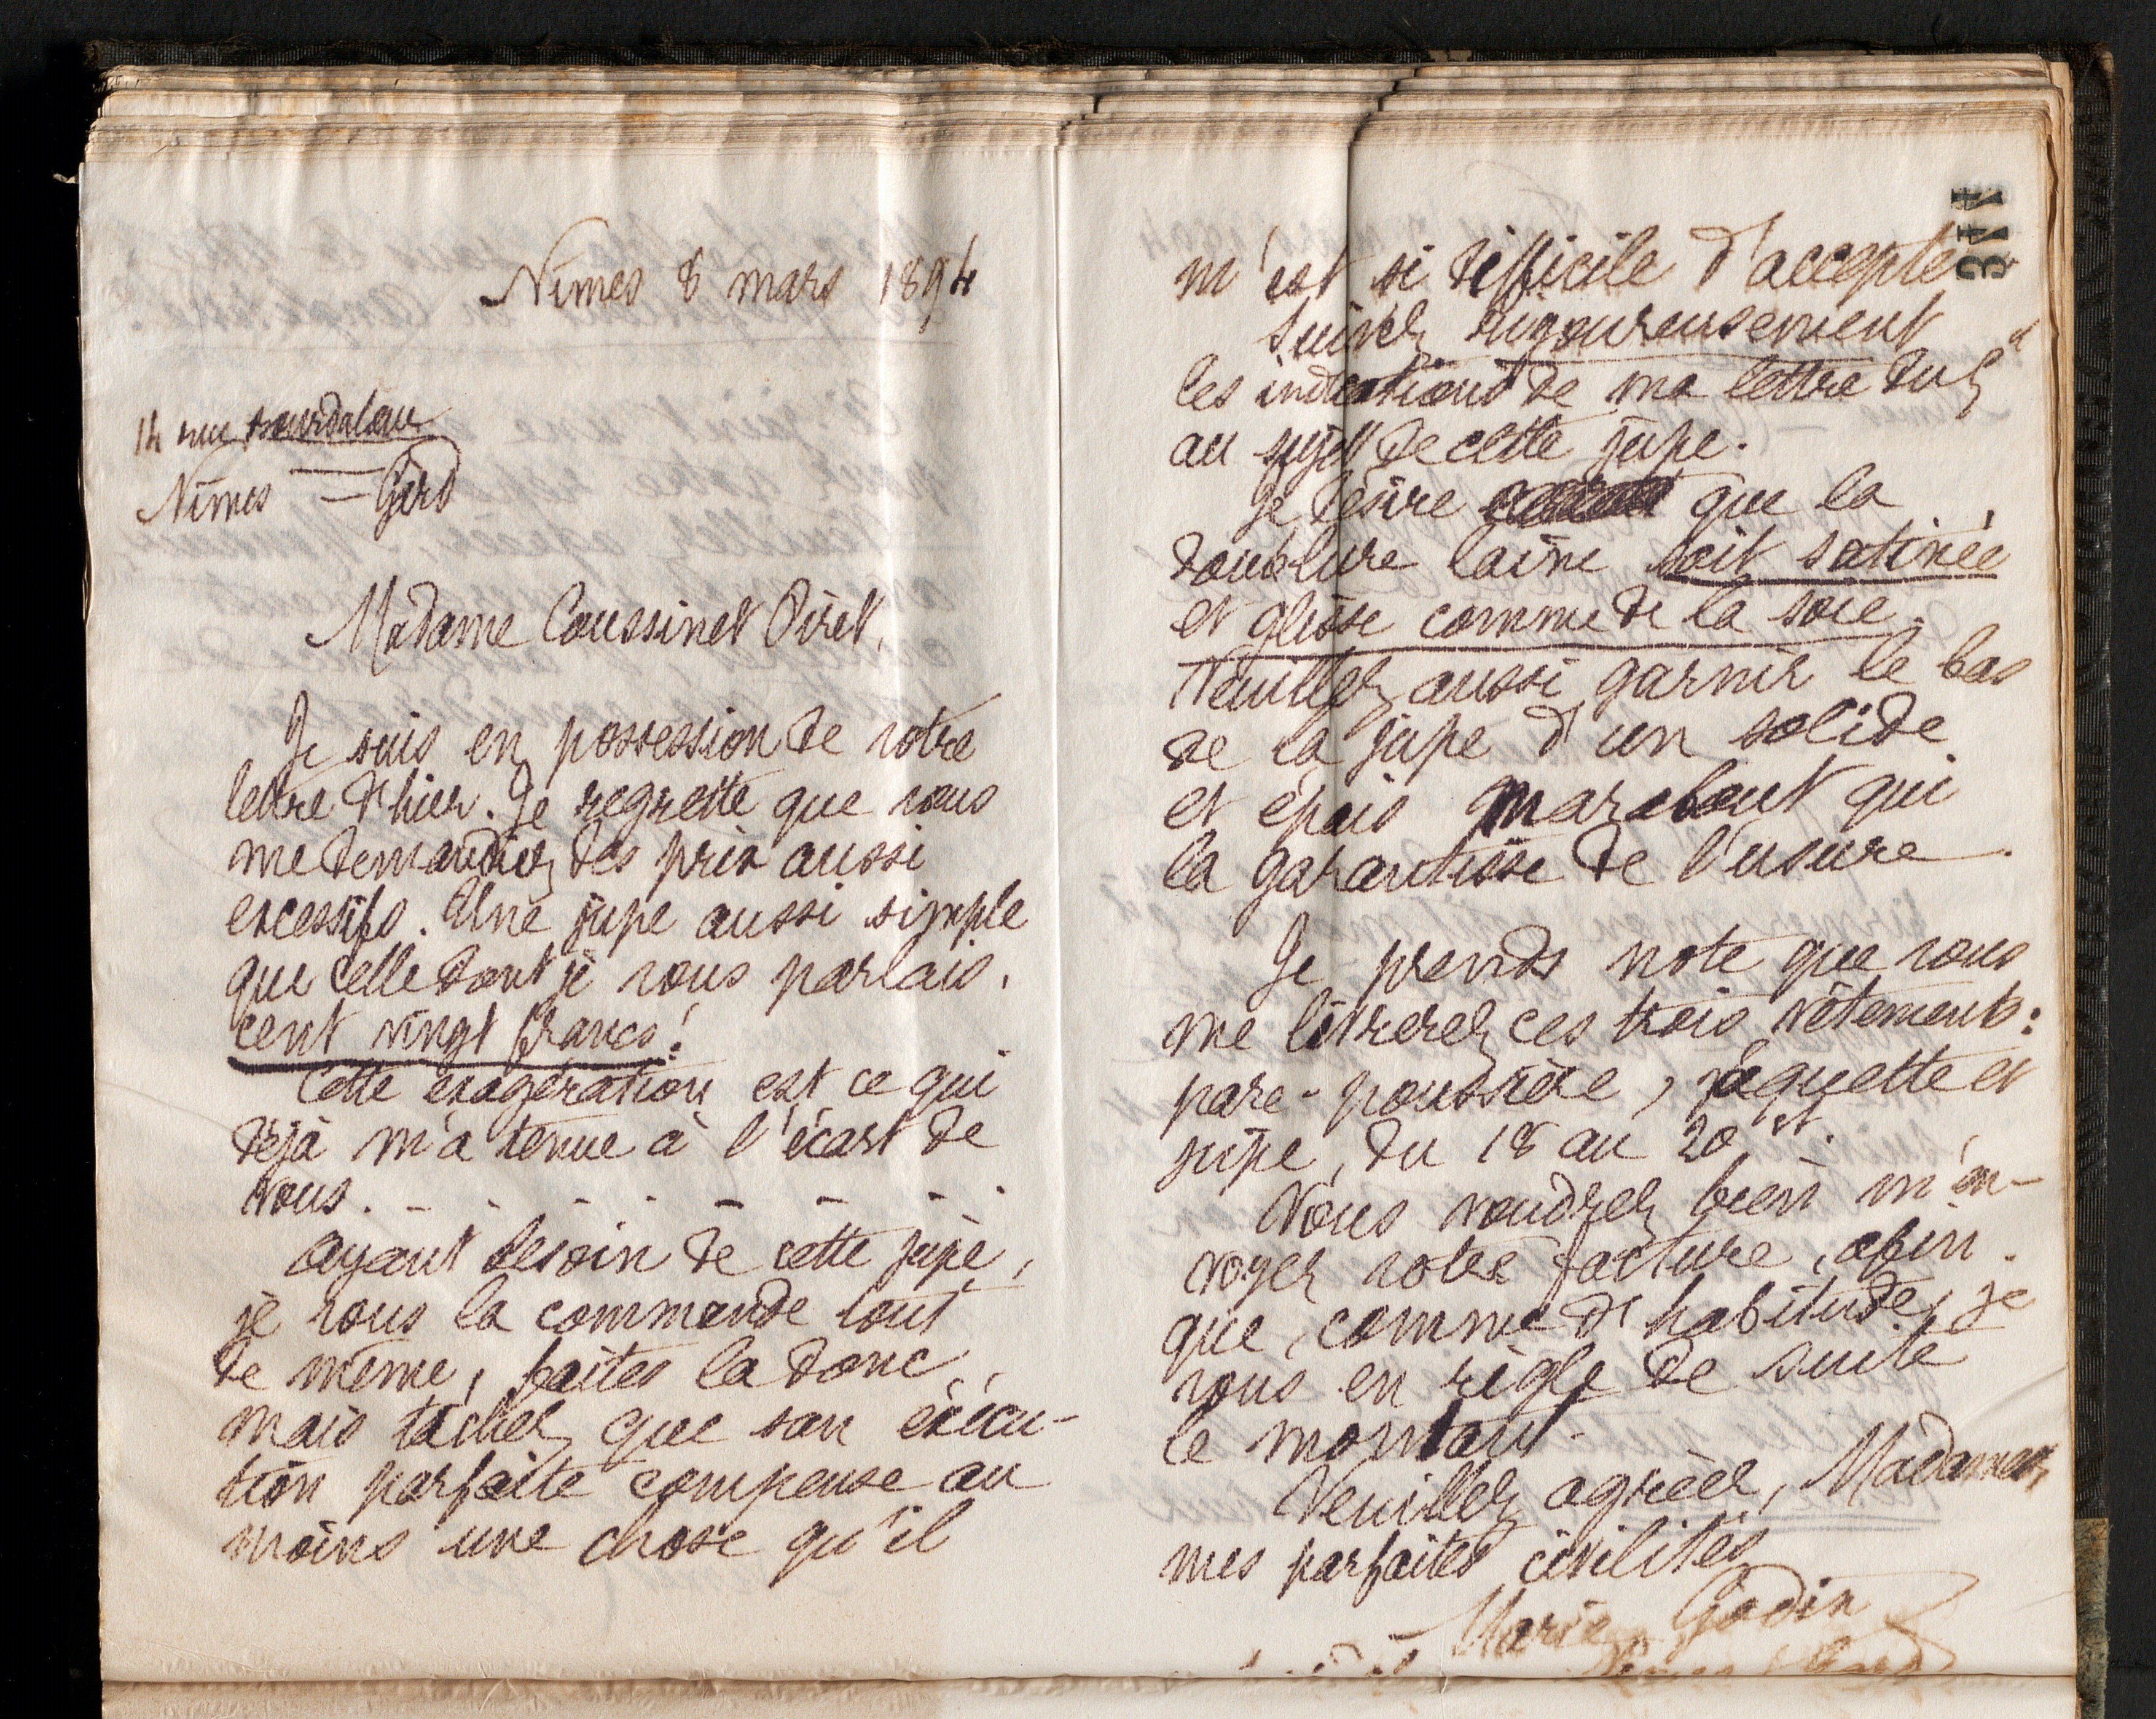 Nîmes 8 mars 1894
14 rue Bourdaloue
Nîmes — Gard
Madame Coussinet Piret,
Je suis en possession de votre
lettre d'hier. Je regrette que vous
me demandiez des prix aussi
excessifs. Une jupe aussi simple
que celle dont je vous parlais,
cent vingt francs !
Cette exagération est ce qui
déjà m'a tenue à l'écart de
vous. - - - - - - -
Ayant besoin de cette jupe,
je vous la commande tout
de même, faites la donc,
mais tâchez que son exécu-
tion parfaite compense au
moins une chose qu'il
311
m'est si difficile d'accepter
Suivez rigoureusement
les indications de ma lettre du 5
au sujet de cette jupe.
Je désire que la
doublure laine soit satinée
et glisse comme de la soie.
Veuillez aussi garnir le bas
de la jupe d'un solide
et épais marabout qui
la garantisse de l'usure.
Je prends note que vous
me livrerez ces trois vêtements :
pare-poussière, jaquette et
jupe, du 18 au 20 ct.
Vous voudrez bien m'en-
voyer votre facture, afin
que, comme d'habitude, je
vous en règle de suite
le montant.
Veuillez agréer, Madame,
mes parfaites civilités
Marie Godin